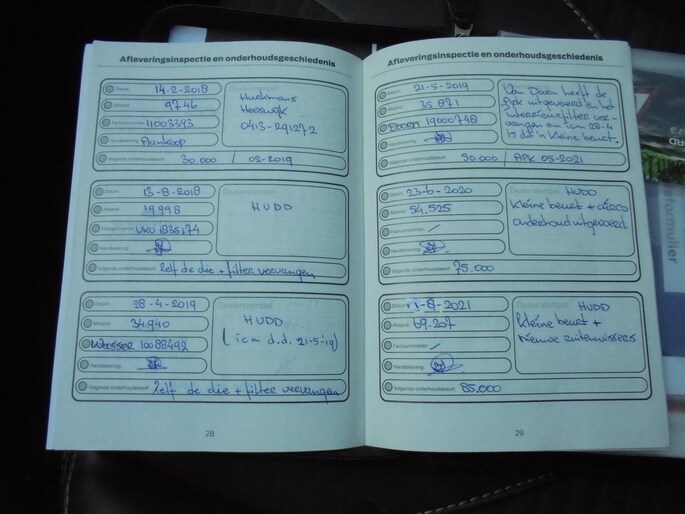 Afleveringsinspectie en onderhoudsgeschiedenis
Datum: 14-2-2018
Afstand: 9746
Factuurnummer: 11003393
Handtekening: Aankoop
Huskmans
Heeswijk
0413-291272
Volgende onderhoudsbeurt: 30.000 / 02-2019
Datum: 13-8-2018
Afstand: 19.998
Factuurnummer: VKO 1835174
Handtekening:
Dealerstempel
HUDD
Volgende onderhoudsbeurt: Zelf de olie + filter vervangen
Datum: 28-4-2019
Afstand: 34.940
Wasser 10088492
Handtekening:
Dealerstempel
HUDD
(icm d.d. 21-5-'19)
Volgende onderhoudsbeurt: Zelf de olie + filter vervangen
28
Afleveringsinspectie en onderhoudsgeschiedenis
Datum: 21-5-2019
Afstand: 35.871
Doorn 19000748
Handtekening:
Van Doorn heeft de
Apk uitgevoerd en het
interieurfilter ver-
vangen en icm 28-4
is dit 'n kleine beurt.
Volgende onderhoudsbeurt: 50.000 / APK 05-2021
Datum: 23-6-2020
Afstand: 54.525
Factuurnummer: /
Handtekening:
Dealerstempel
HUDD
Kleine beurt + airco
onderhoud uitgevoerd
Volgende onderhoudsbeurt: 75.000
Datum: 1-8-2021
Afstand: 69.207
Factuurnummer: /
Handtekening:
Dealerstempel
HUDD
Kleine beurt +
nieuwe ruitenwissers
Volgende onderhoudsbeurt: 85.000
29
formulier